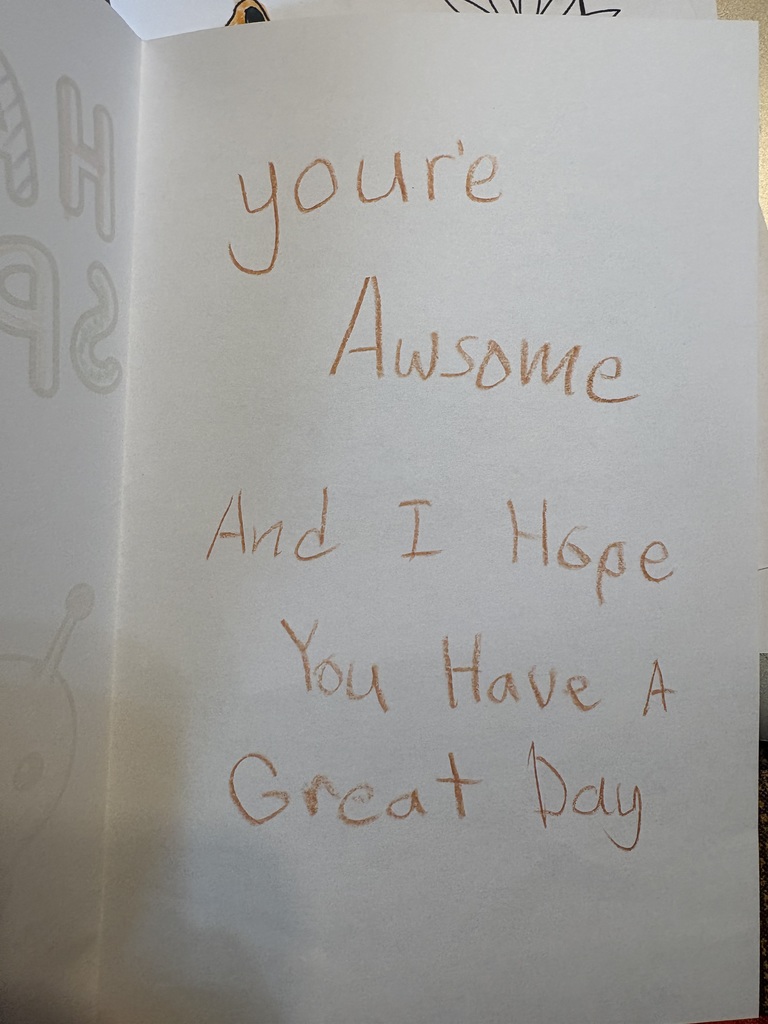 your'e
Awsome
And I Hope
You Have A
Great Day